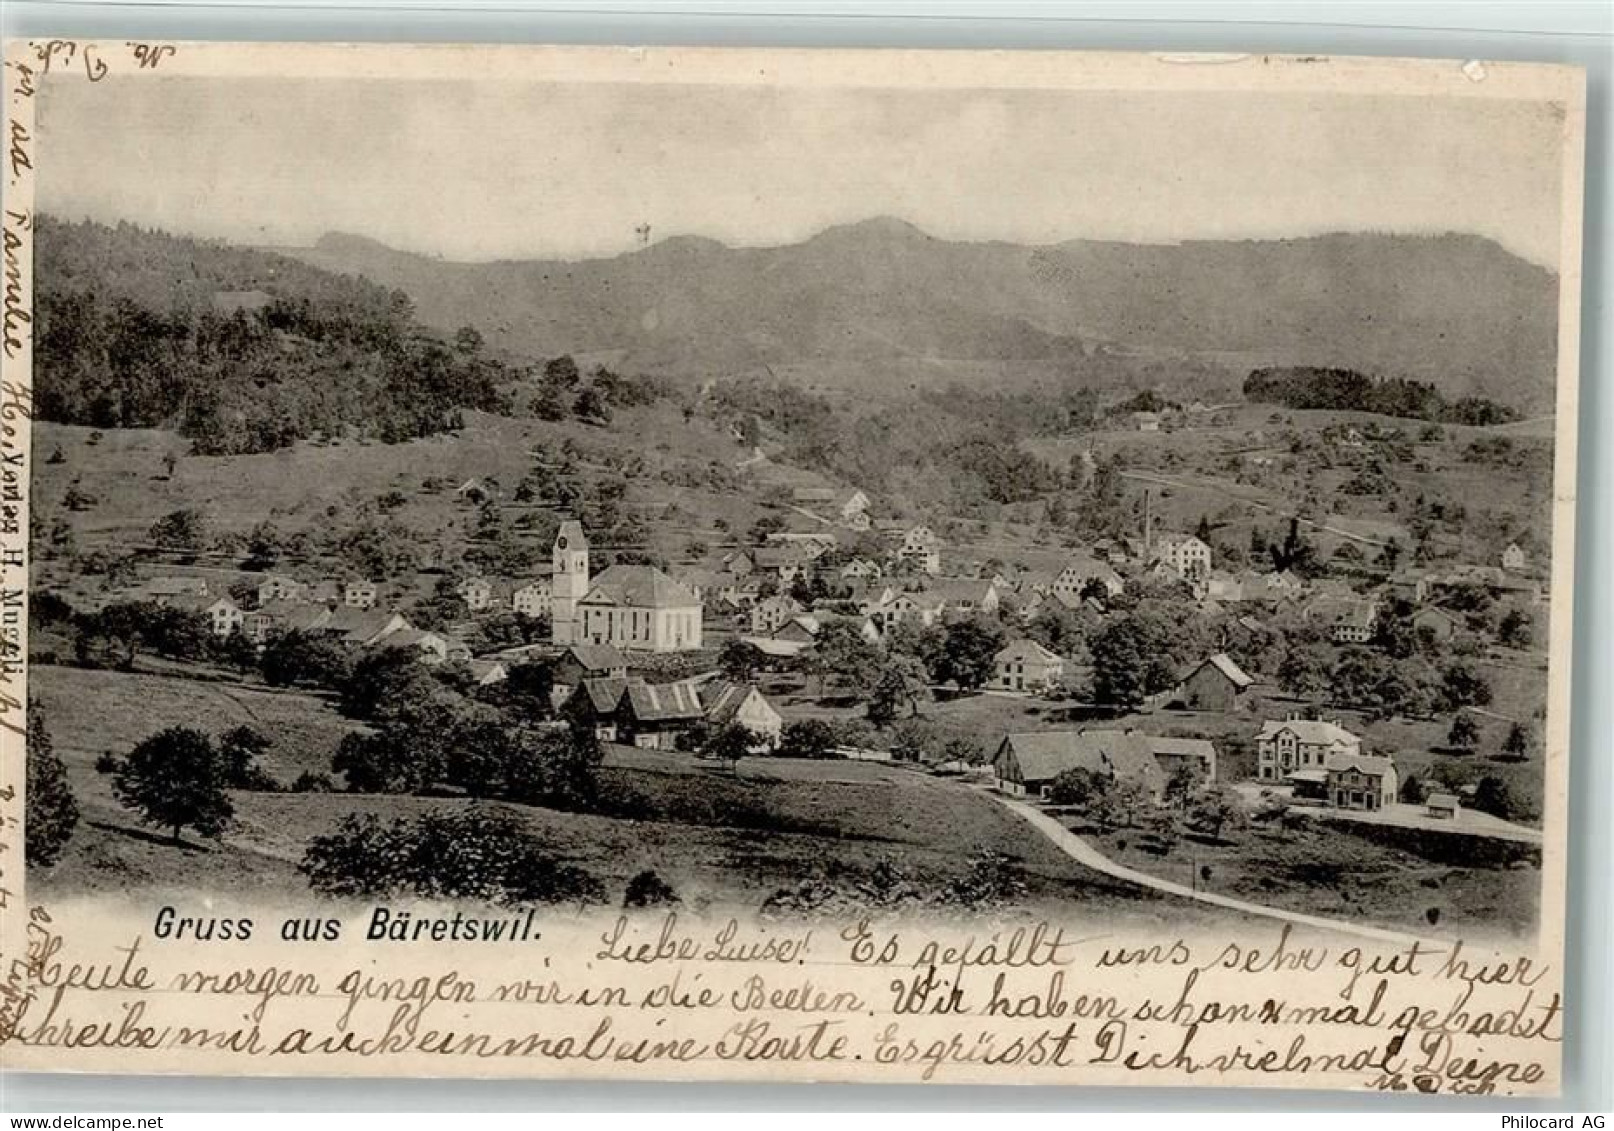 Gruss aus Bäretswil.
Liebe Luise! Es gefällt uns sehr gut hier
Heute morgen gingen wir in die Beeren. Wir haben schon mal gebadet
schreibe mir auch einmal eine Karte. Es grüsst Dich vielmal Deine
M.
Familie
Verlag H.
Philocard AG